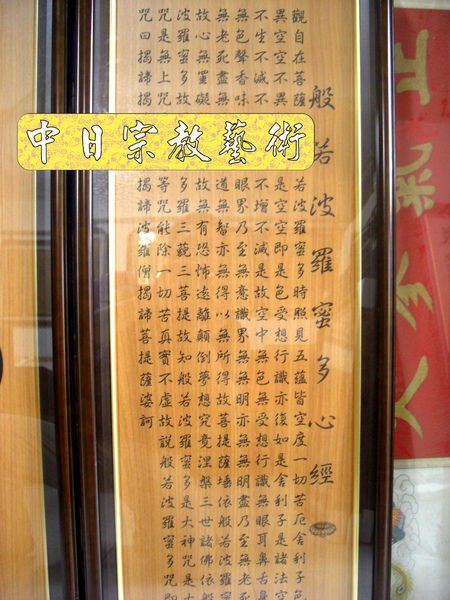 中日宗教藝術
般若波羅蜜多心經
觀自在菩薩 若波羅蜜多時照見五蘊皆空度一切苦厄舍利子色
異空空不異 是空空即是色受想行識亦復如是舍利子是諸法空
不生不滅不 不增不減是故空中無色無受想行識無眼耳鼻舌身
無色聲香味 眼界乃至無意識界無無明亦無無明盡乃至無老死
無老死盡無 道無智亦無得以無所得故菩提薩埵依般若波羅蜜
故心無罣礙 故無有恐怖遠離顛倒夢想究竟涅槃三世諸佛依般
波羅蜜多故 多羅三藐三菩提故知般若波羅蜜多是大神咒是大
咒是無上咒 等咒能除一切苦真實不虛故說般若波羅蜜多咒即
咒曰揭諦揭 揭諦波羅僧揭諦菩提薩婆訶
正氣